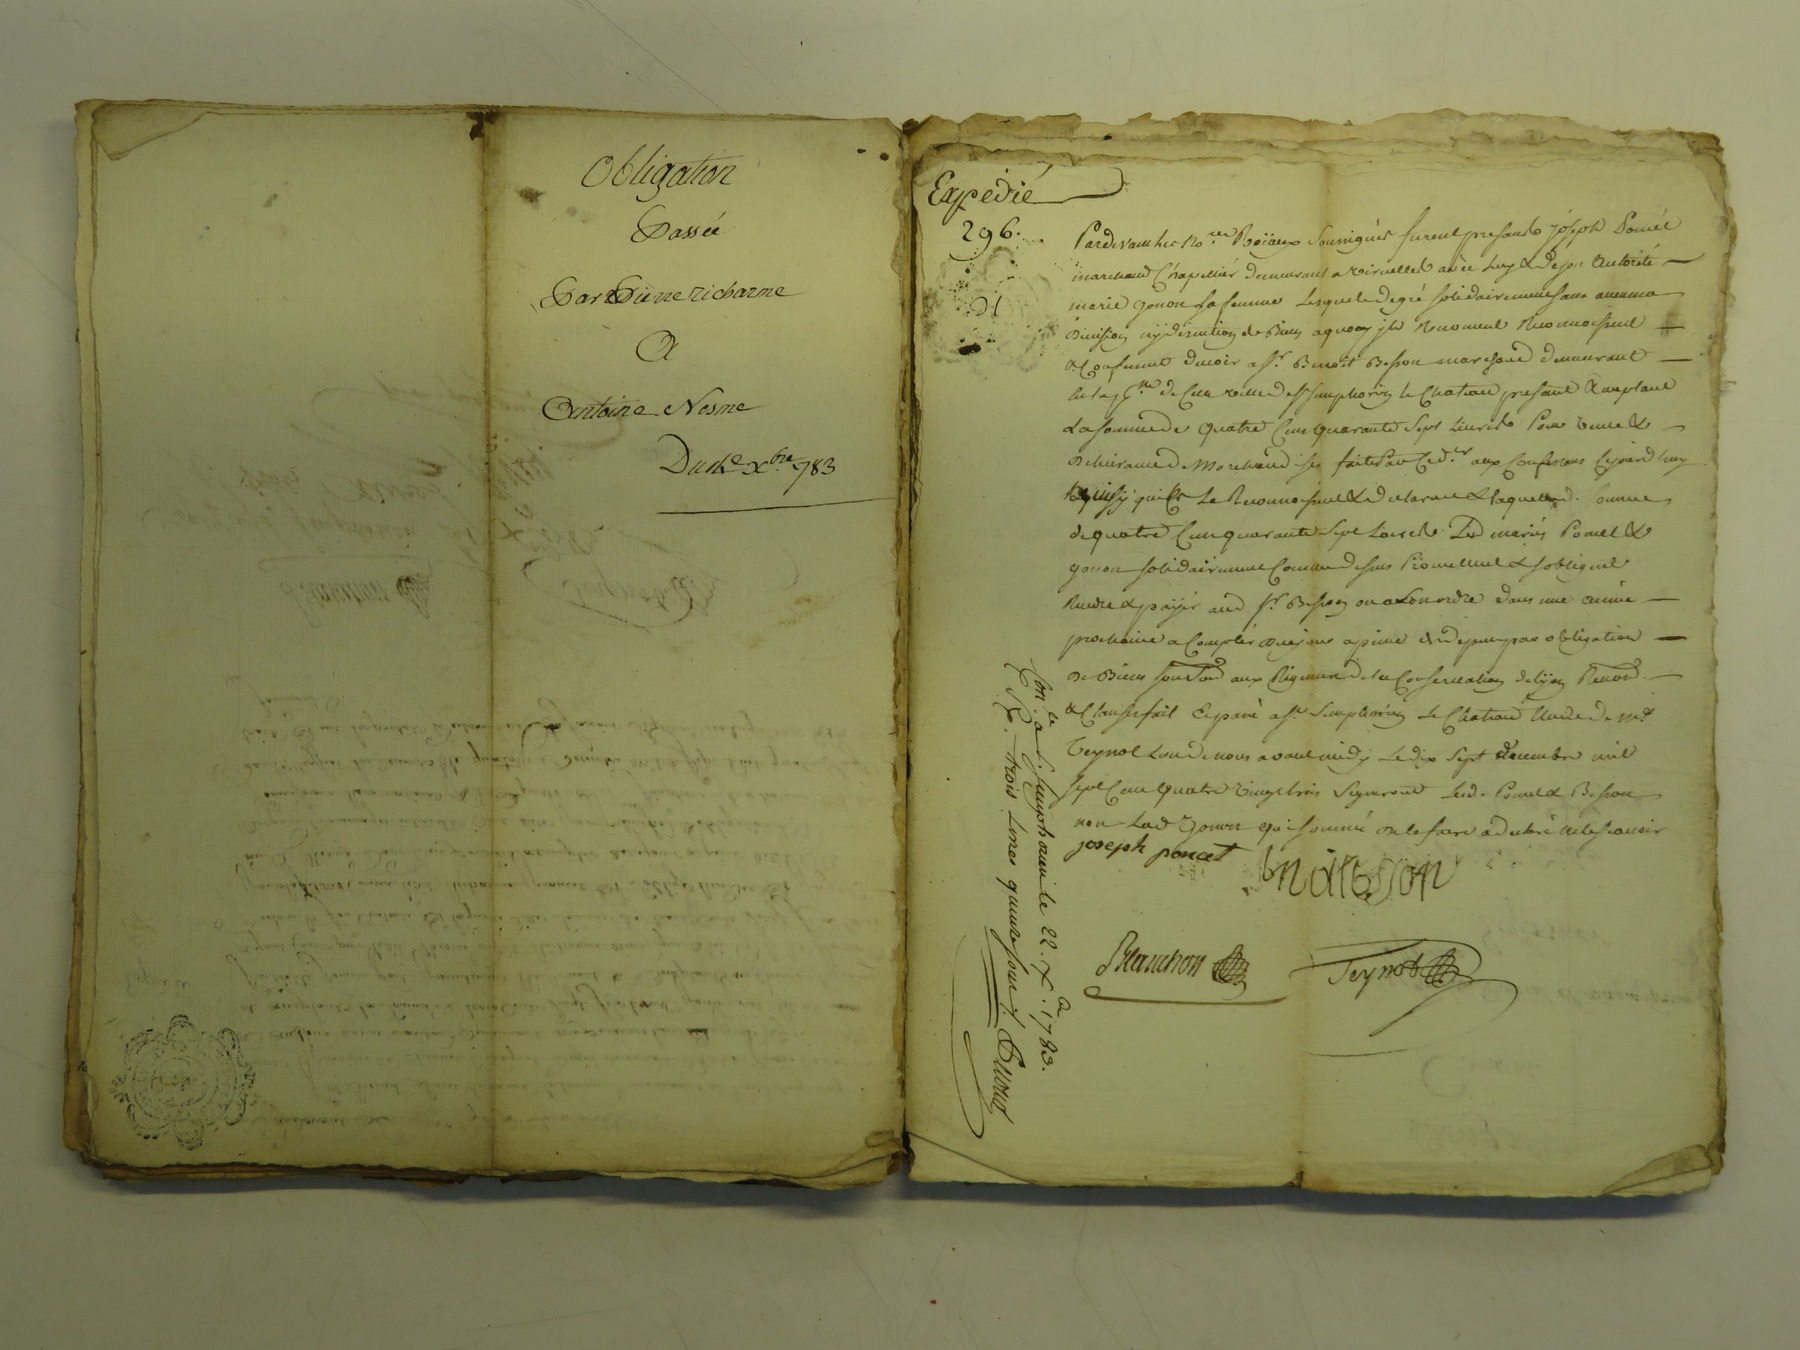 Obligation
Passée
Par Pierre richarme
A
Antoine Nesme
Du xbre 783
Expedié
296.
Pardevant les No.res Roïaux Soussignés furent presents joseph Poncet
marchand Chapellier demeurant a avec luy & de son Autorité
marie gonon sa femme Lesquels de gré solidairement sans aucune
division ny discution de Biens a quoy ils Renoncent Reconnoissent
& Confessent devoir a Sr. Benoit Besson marchand demeurant
de Cette ville de st simphorien le Chateau present & acceptant
La somme de quatre Cent quarante Sept Livres Pour vente &
delivrance de Marchandises faites par led. Sr aux Confessans Cejourd'huy
ainsy qu'ils Le Reconnoissent & declarent & laquelle d. somme
de quatre Cent quarante Sept Livres Led mariés Poncet &
gonon solidairement Comme dessus Promettent & s'obligent
Rendre & payer aud Sr. Besson ou a son ordre dans une année
prochaine a Compter de ce jour a peine de depens par obligation
de Biens aux Rigueurs de la Conservation de Lyon Renond.
& Clauses fait & passé a St. Simphorien Le Chateau Etude de me
Teynot L'un de nous avant midy Le dix Sept decembre mil
sept Cent quatre vingt trois Signeront Lesd. Poncet & Besson
non Lad gonon qui sommée de le faire a declaré ne le sçavoir
joseph poncet
Blanchon
Teynot
Con.lé à S. Symphorien le 22. X.bre 1783.
R. trois Livres quatre sous